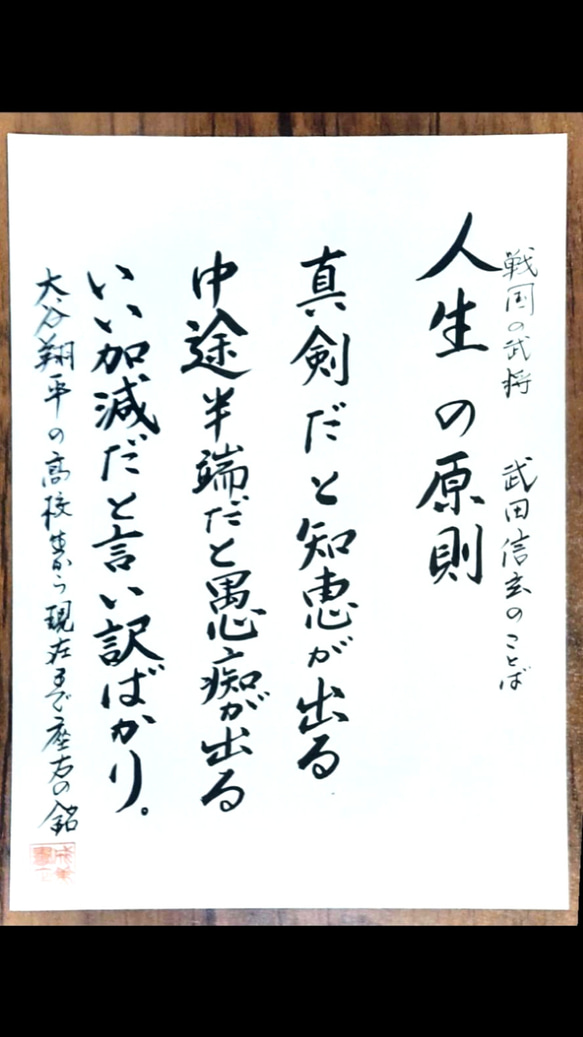 戦国の武将 武田信玄のことば
人生の原則
真剣だと知恵が出る
中途半端だと愚痴が出る
いい加減だと言い訳ばかり。
大谷翔平の高校生から現在まで座右の銘